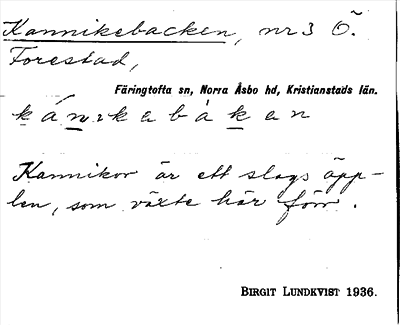 Kannikebacken, nr 3 Ö.
Forestad,
Färingtofta sn, Norra Åsbo hd, Kristianstads län.
kánikabàkan
Kannikor är ett slags äpp-
len, som växte här förr.
BIRGIT LUNDKVIST 1936.